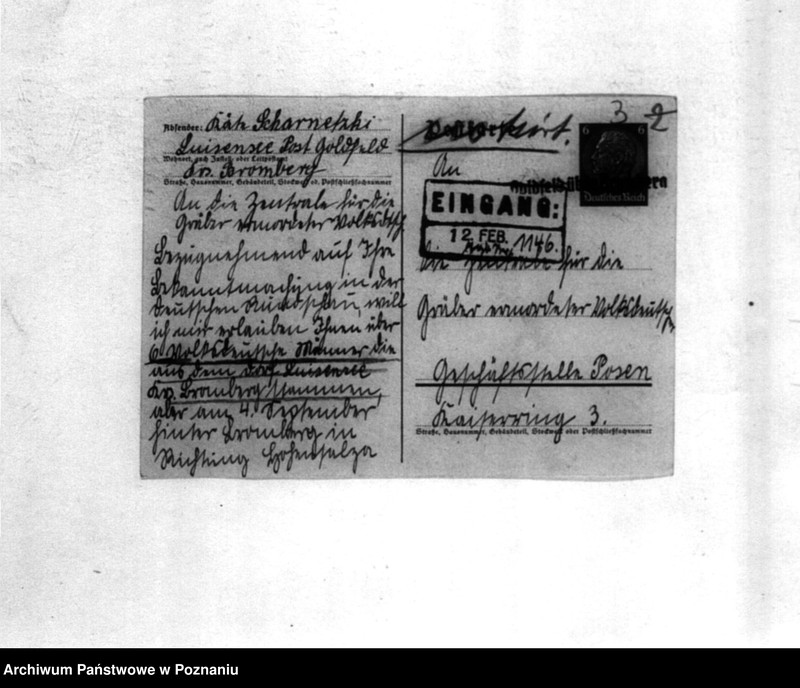 Absender: Käte Scharnetzki
Luisensee Post Goldfeld
Wohnort, auch Zustell- oder Leitpostamt
Krs. Bromberg
Straße, Hausnummer, Gebäudeteil, Stockwerk od. Postschließfachnummer
An die Zentrale für die
Gräber ermordeter Volksdtsch.
Bezugnehmend auf Ihre
Bekanntmachung in der
Deutschen Rundschau, will
ich mir erlauben Ihnen über
6 Volksdeutsche Männer die
aus dem Dorf Luisensee
Krs. Bromberg stammen,
aber am 4. September
hinter Bromberg in
Richtung Hohensalza
3
2
6 6
Deutsches Reich
An
EINGANG:
12 FEB.
1146.
die Zentrale für die
Gräber ermordeter Volksdeutscher
Geschäftsstelle Posen
Kaiserring 3.
Straße, Hausnummer, Gebäudeteil, Stockwerk oder Postschließfachnummer
Archiwum Państwowe w Poznaniu